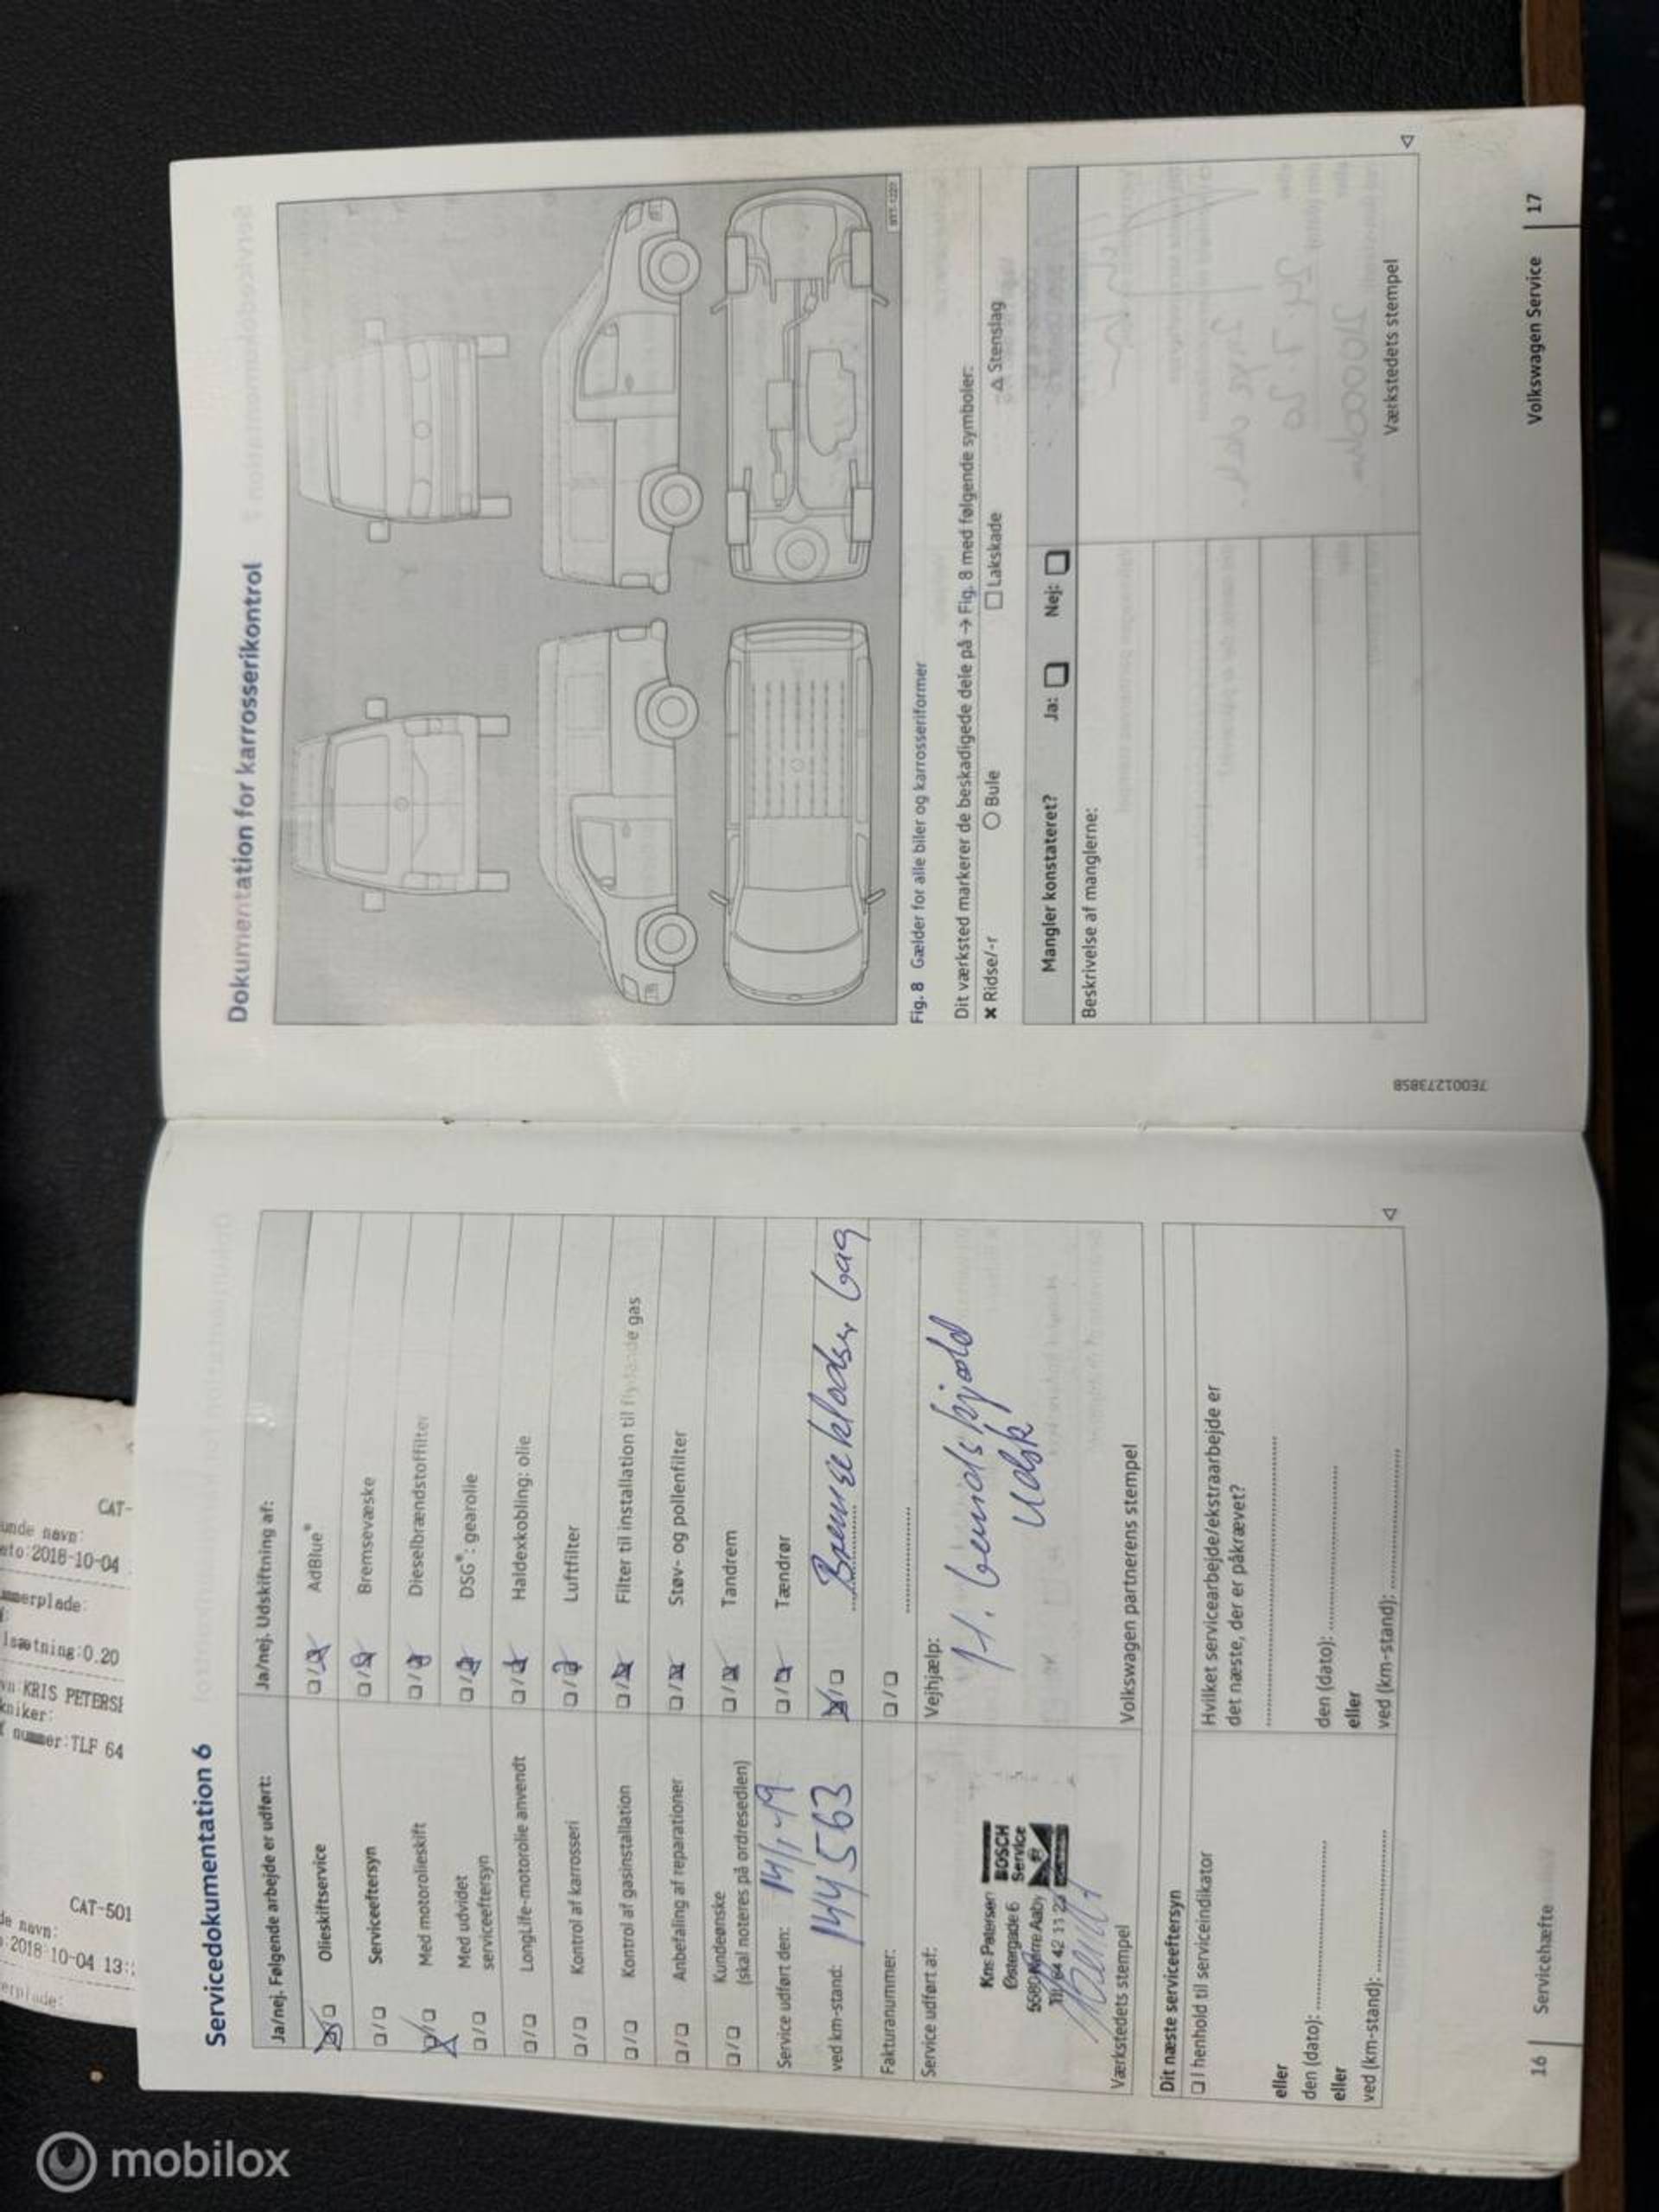 Servicedokumentation 6
Ja/nej. Følgende arbejde er udført:
Olieskiftservice
Serviceeftersyn
Med motorolieskift
Med udvidet
serviceeftersyn
LongLife-motorolie anvendt
Kontrol af karrosseri
Kontrol af gasinstallation
Anbefaling af reparationer
Kundeønske
(skal noteres på ordresedlen)
Service udført den: 14/1-19
ved km-stand: 144563
Fakturanummer:
Service udført af:
Kris Petersen
Østergade 6
5580 Nørre Aaby
Tlf. 64 42 11 23
BOSCH
Service
Værkstedets stempel
Ja/nej. Udskiftning af:
AdBlue®
Bremsevæske
Dieselbrændstoffilter
DSG®: gearolie
Haldexkobling: olie
Luftfilter
Filter til installation til flydende gas
Støv- og pollenfilter
Tandrem
Tændrør
Bremseklodser bag
Vejhjælp:
H. bremseskjold
Udsk
Volkswagen partnerens stempel
Dit næste serviceeftersyn
I henhold til serviceindikator
eller
den (dato):
eller
ved (km-stand):
Hvilket servicearbejde/ekstraarbejde er
det næste, der er påkrævet?
den (dato):
eller
ved (km-stand):
16 Servicehæfte
Dokumentation for karrosserikontrol
Fig. 8 Gælder for alle biler og karrosseriformer
Dit værksted markerer de beskadigede dele på → Fig. 8 med følgende symboler:
× Ridse/-r ○ Bule □ Lakskade △ Stenslag
Mangler konstateret? Ja: Nej:
Beskrivelse af manglerne:
Værkstedets stempel
7E0012738SB
Volkswagen Service 17
CAT-
2018-10-04
lsætning:0.20
KRIS PETERSE
nummer:TLF 64
CAT-501
2018-10-04 13:
mobilox